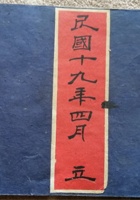 民國十九年四月 立